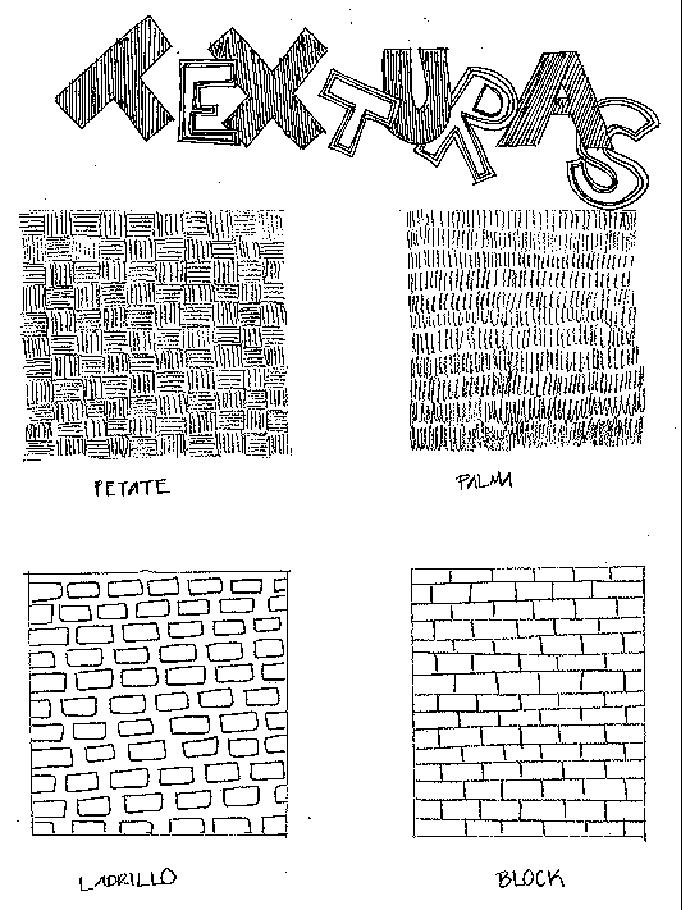 TEXTURAS
PETATE
PALMA
LADRILLO
BLOCK